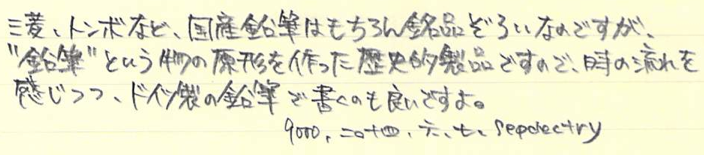 三菱、トンボなど、国産鉛筆はもちろん銘品ぞろいなのですが、
"鉛筆"という物の原形を作った歴史的製品ですので、時の流れを
感じつつ、ドイツ製の鉛筆で書くのも良いですよ。
9000, 二〇十四, 六, 七,